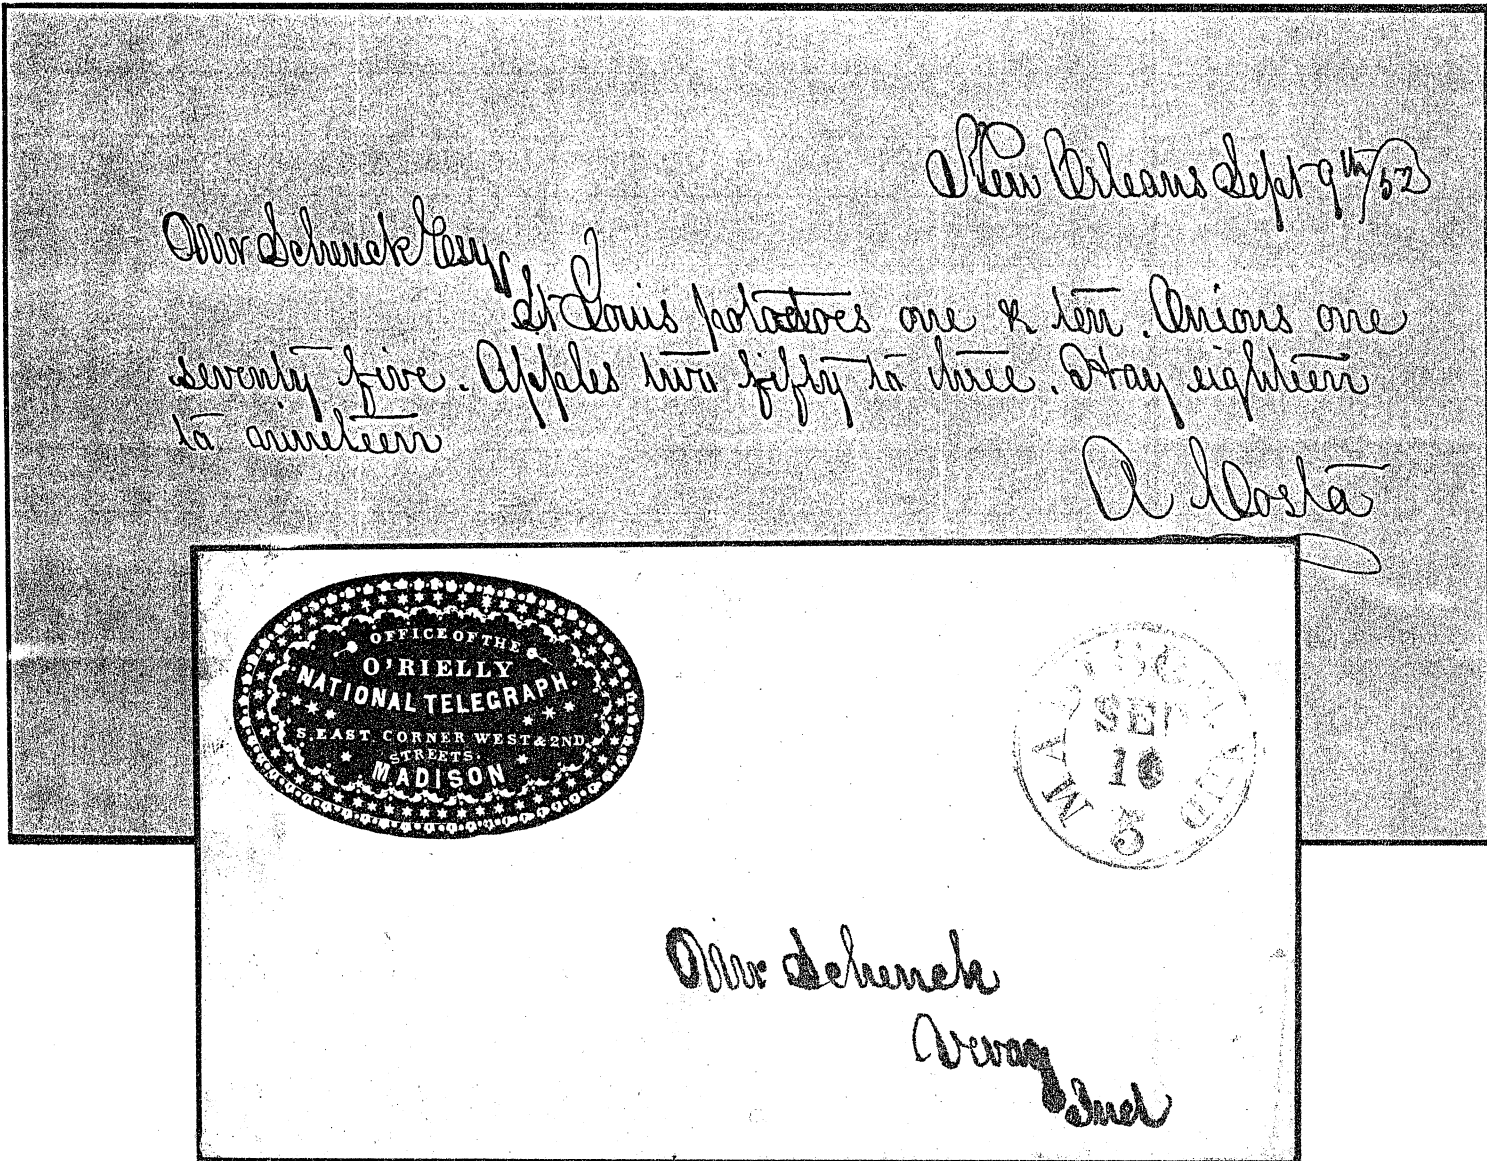 New Orleans Sept 9th/52
Mr Schenck Esq
St Louis potatoes one & ten. Onions one
seventy five. Apples two fifty to three. Hay eighteen
to nineteen
A Costa
OFFICE OF THE
O'RIELLY
NATIONAL TELEGRAPH
S.EAST CORNER WEST & 2ND
STREETS.
MADISON
MADISON IND
SEP
10
5
Mr Schenck
Vevay
Ind